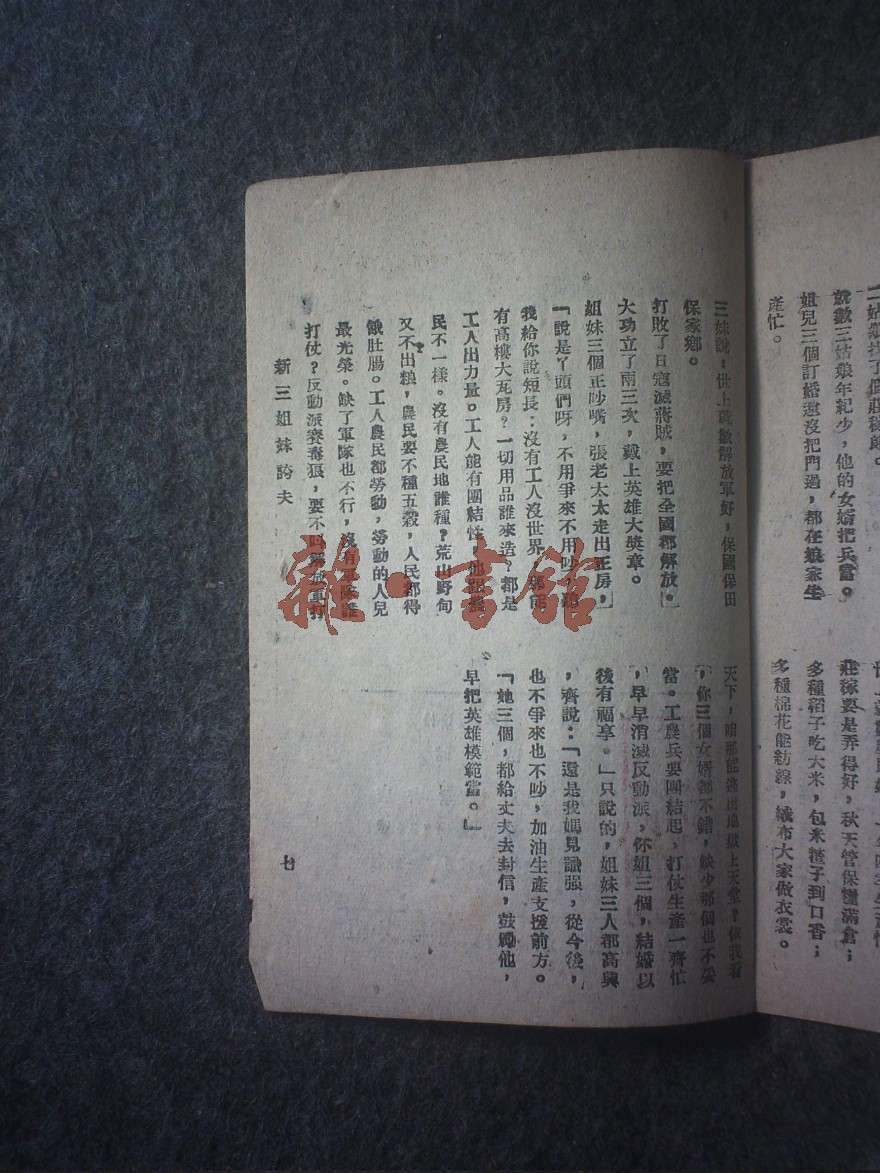 二姑娘找了個莊稼郎。
就數三姑娘年紀少，他的女婿把兵當。
姐兒三個訂婚還沒把門過，都在娘家生
產忙。
莊稼要是弄得好，秋天管保糧滿倉；
多種稻子吃大米，包米楂子到口香；
多種棉花能紡線，織布大家做衣裳。
三妹說：世上就數解放軍好，保國保田
保家鄉。
打敗了日寇滅蔣賊，要把全國都解放。
大功立了兩三次，戴上英雄大獎章。
姐妹三個正吵嘴，張老太太走出正房，
「說是丫頭們呀，不用爭來不用吵，
我給你說短長：沒有工人沒世界，
有高樓大瓦房？一切用品誰來造？都是
工人出力量。工人能有團結性，
民不一樣。沒有農民地誰種？荒山野甸
又不出糧，農民要不種五穀，人民都得
餓肚腸。工人農民都勞動，勞動的人兒
最光榮。缺了軍隊也不行，沒有
打仗？反動派賽毒狼，要不
天下，咱那能逃出地獄上天堂？依我看
，你三個女婿都不錯，缺少那個也不妥
當。工農兵要團結起，打仗生產一齊忙
，早早消滅反動派，你姐三個，結婚以
後有福享。」只說的，姐妹三人都高興
，齊說：「還是我媽見識强，從今後，
也不爭來也不吵，加油生產支援前方。
「她三個，都給丈夫去封信，鼓勵他，
早把英雄模範當。」
新三姐妹誇夫
七
雜·書館